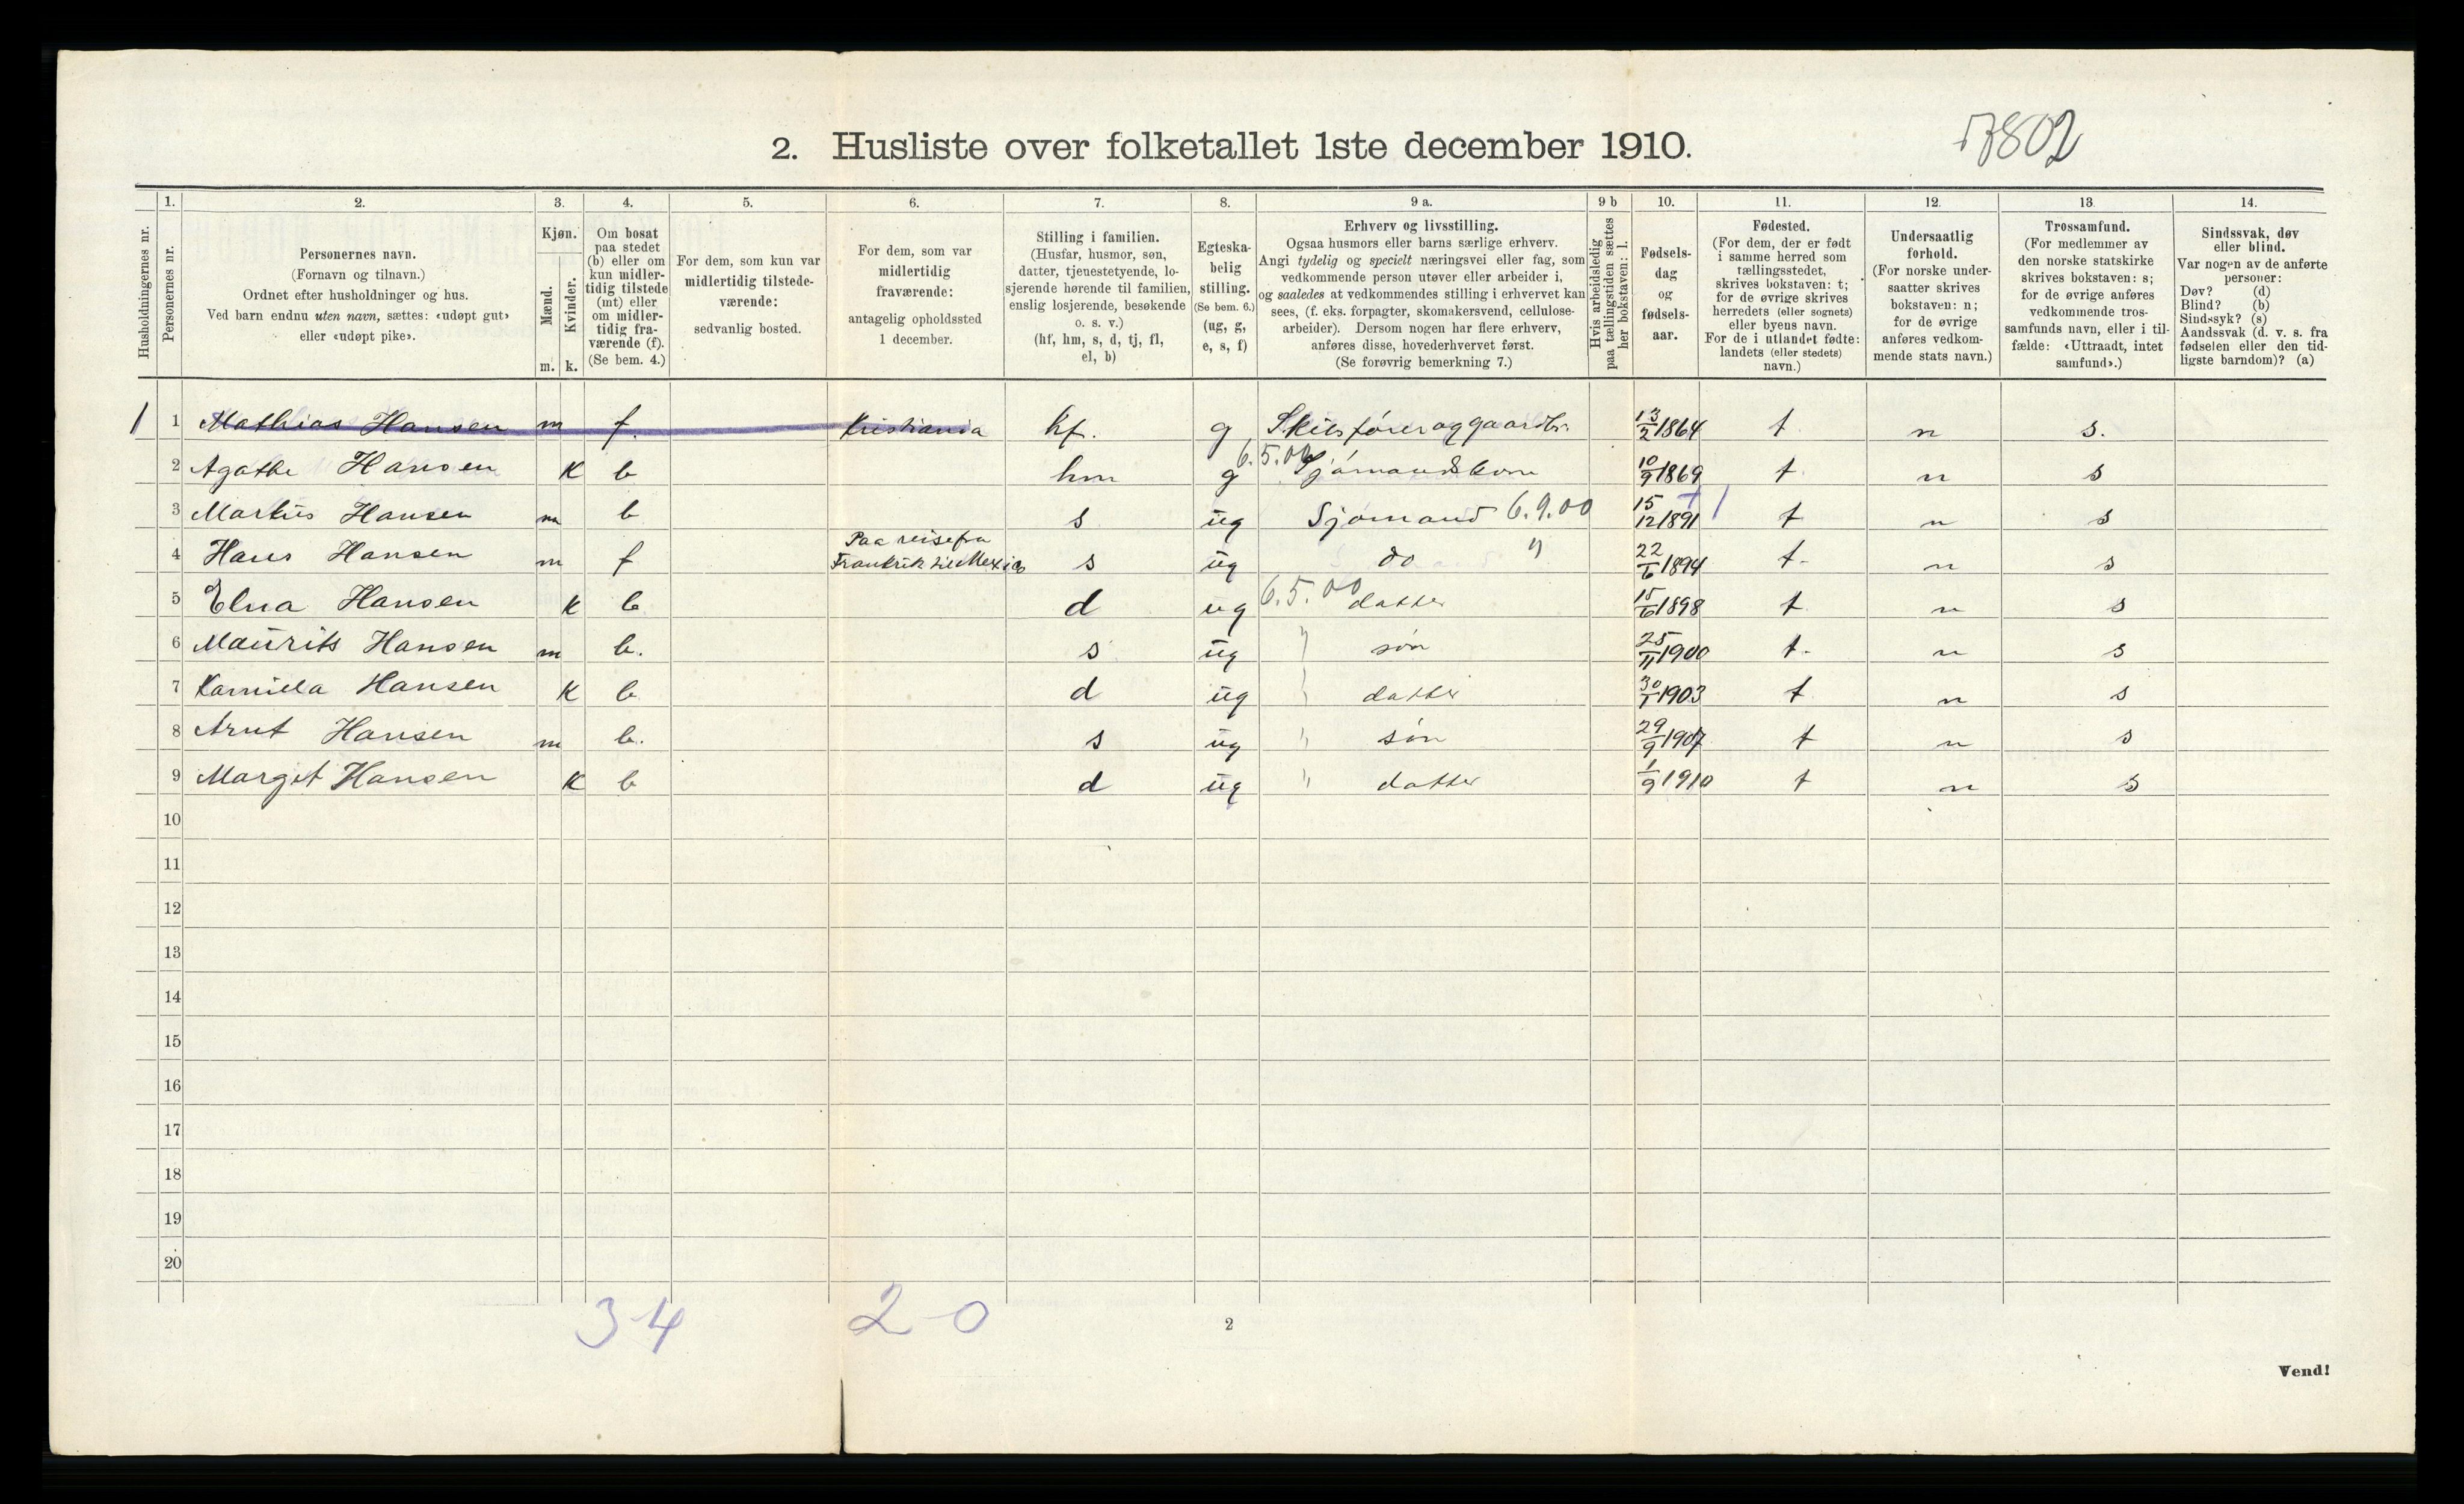 2. Husliste over folketallet 1ste december 1910.
Husholdningernes nr.
1.
Personernes nr.
2.
Personernes navn.
(Fornavn og tilnavn.)
Ordnet efter husholdninger og hus.
Ved barn endnu uten navn, sættes: «udøpt gut»
eller «udøpt pike».
3.
Kjøn.
Mænd.
m.
Kvinder.
k.
4.
Om bosat
paa stedet
(b) eller om
kun midler-
tidig tilstede
(mt) eller
om midler-
tidig fra-
værende (f).
(Se bem. 4.)
5.
For dem, som kun var
midlertidig tilstede-
værende:
sedvanlig bosted.
6.
For dem, som var
midlertidig
fraværende:
antagelig opholdssted
1 december.
7.
Stilling i familien.
(Husfar, husmor, søn,
datter, tjenestetyende, lo-
sjerende hørende til familien,
enslig losjerende, besøkende
o. s. v.)
(hf, hm, s, d, tj, fl,
el, b)
8.
Egteska-
belig
stilling.
(Se bem. 6.)
(ug, g,
e, s, f)
9 a.
Erhverv og livsstilling.
Ogsaa husmors eller barns særlige erhverv.
Angi tydelig og specielt næringsvei eller fag, som
vedkommende person utøver eller arbeider i,
og saaledes at vedkommendes stilling i erhvervet kan
sees, (f. eks. forpagter, skomakersvend, cellulose-
arbeider). Dersom nogen har flere erhverv,
anføres disse, hovederhvervet først.
(Se forøvrig bemerkning 7.)
9 b
Hvis arbeidsledig
paa tællingstiden sættes
her bokstaven: l.
10.
Fødsels-
dag
og
fødsels-
aar.
11.
Fødested.
(For dem, der er født
i samme herred som
tællingsstedet,
skrives bokstaven: t;
for de øvrige skrives
herredets (eller sognets)
eller byens navn.
For de i utlandet fødte:
landets (eller stedets)
navn.)
12.
Undersaatlig
forhold.
(For norske under-
saatter skrives
bokstaven: n;
for de øvrige
anføres vedkom-
mende stats navn.)
13.
Trossamfund.
(For medlemmer av
den norske statskirke
skrives bokstaven: s;
for de øvrige anføres
vedkommende tros-
samfunds navn, eller i til-
fælde: «Uttraadt, intet
samfund».)
14.
Sindssvak, døv
eller blind.
Var nogen av de anførte
personer:
Døv? (d)
Blind? (b)
Sindssyk? (s)
Aandssvak (d. v. s. fra
fødselen eller den tid-
ligste barndom)? (a)
1 1 Mathias Hansen m f. Kristiania hf. g 13/2 1864 t n s.
2 Agathe Hansen K b hm g 6.5.00 Sjømandskone 10/9 1869 t. n s
3 Markus Hansen m b s ug Sjømand 6.9.00 15/12 1891 t n s
4 Hans Hansen m f Paa reise fra
Frankrik til Mexico s ug do " 22/6 1894 t. n s
5 Elna Hansen K b d ug 6.5.00 datter 15/6 1898 t. n s
6 Maurits Hansen m b. s ug " søn 25/11 1900 t. n s
7 Kamilla Hansen K b d ug " datter 30/1 1903 t n s
8 Arnt Hansen m b. s ug " søn 29/9 1907 t n s
9 Margit Hansen K b d ug " datter 1/9 1910 t n s
10
11
12
13
14
15
16
17
18
19
20
3-4 2-0
2
Vend!